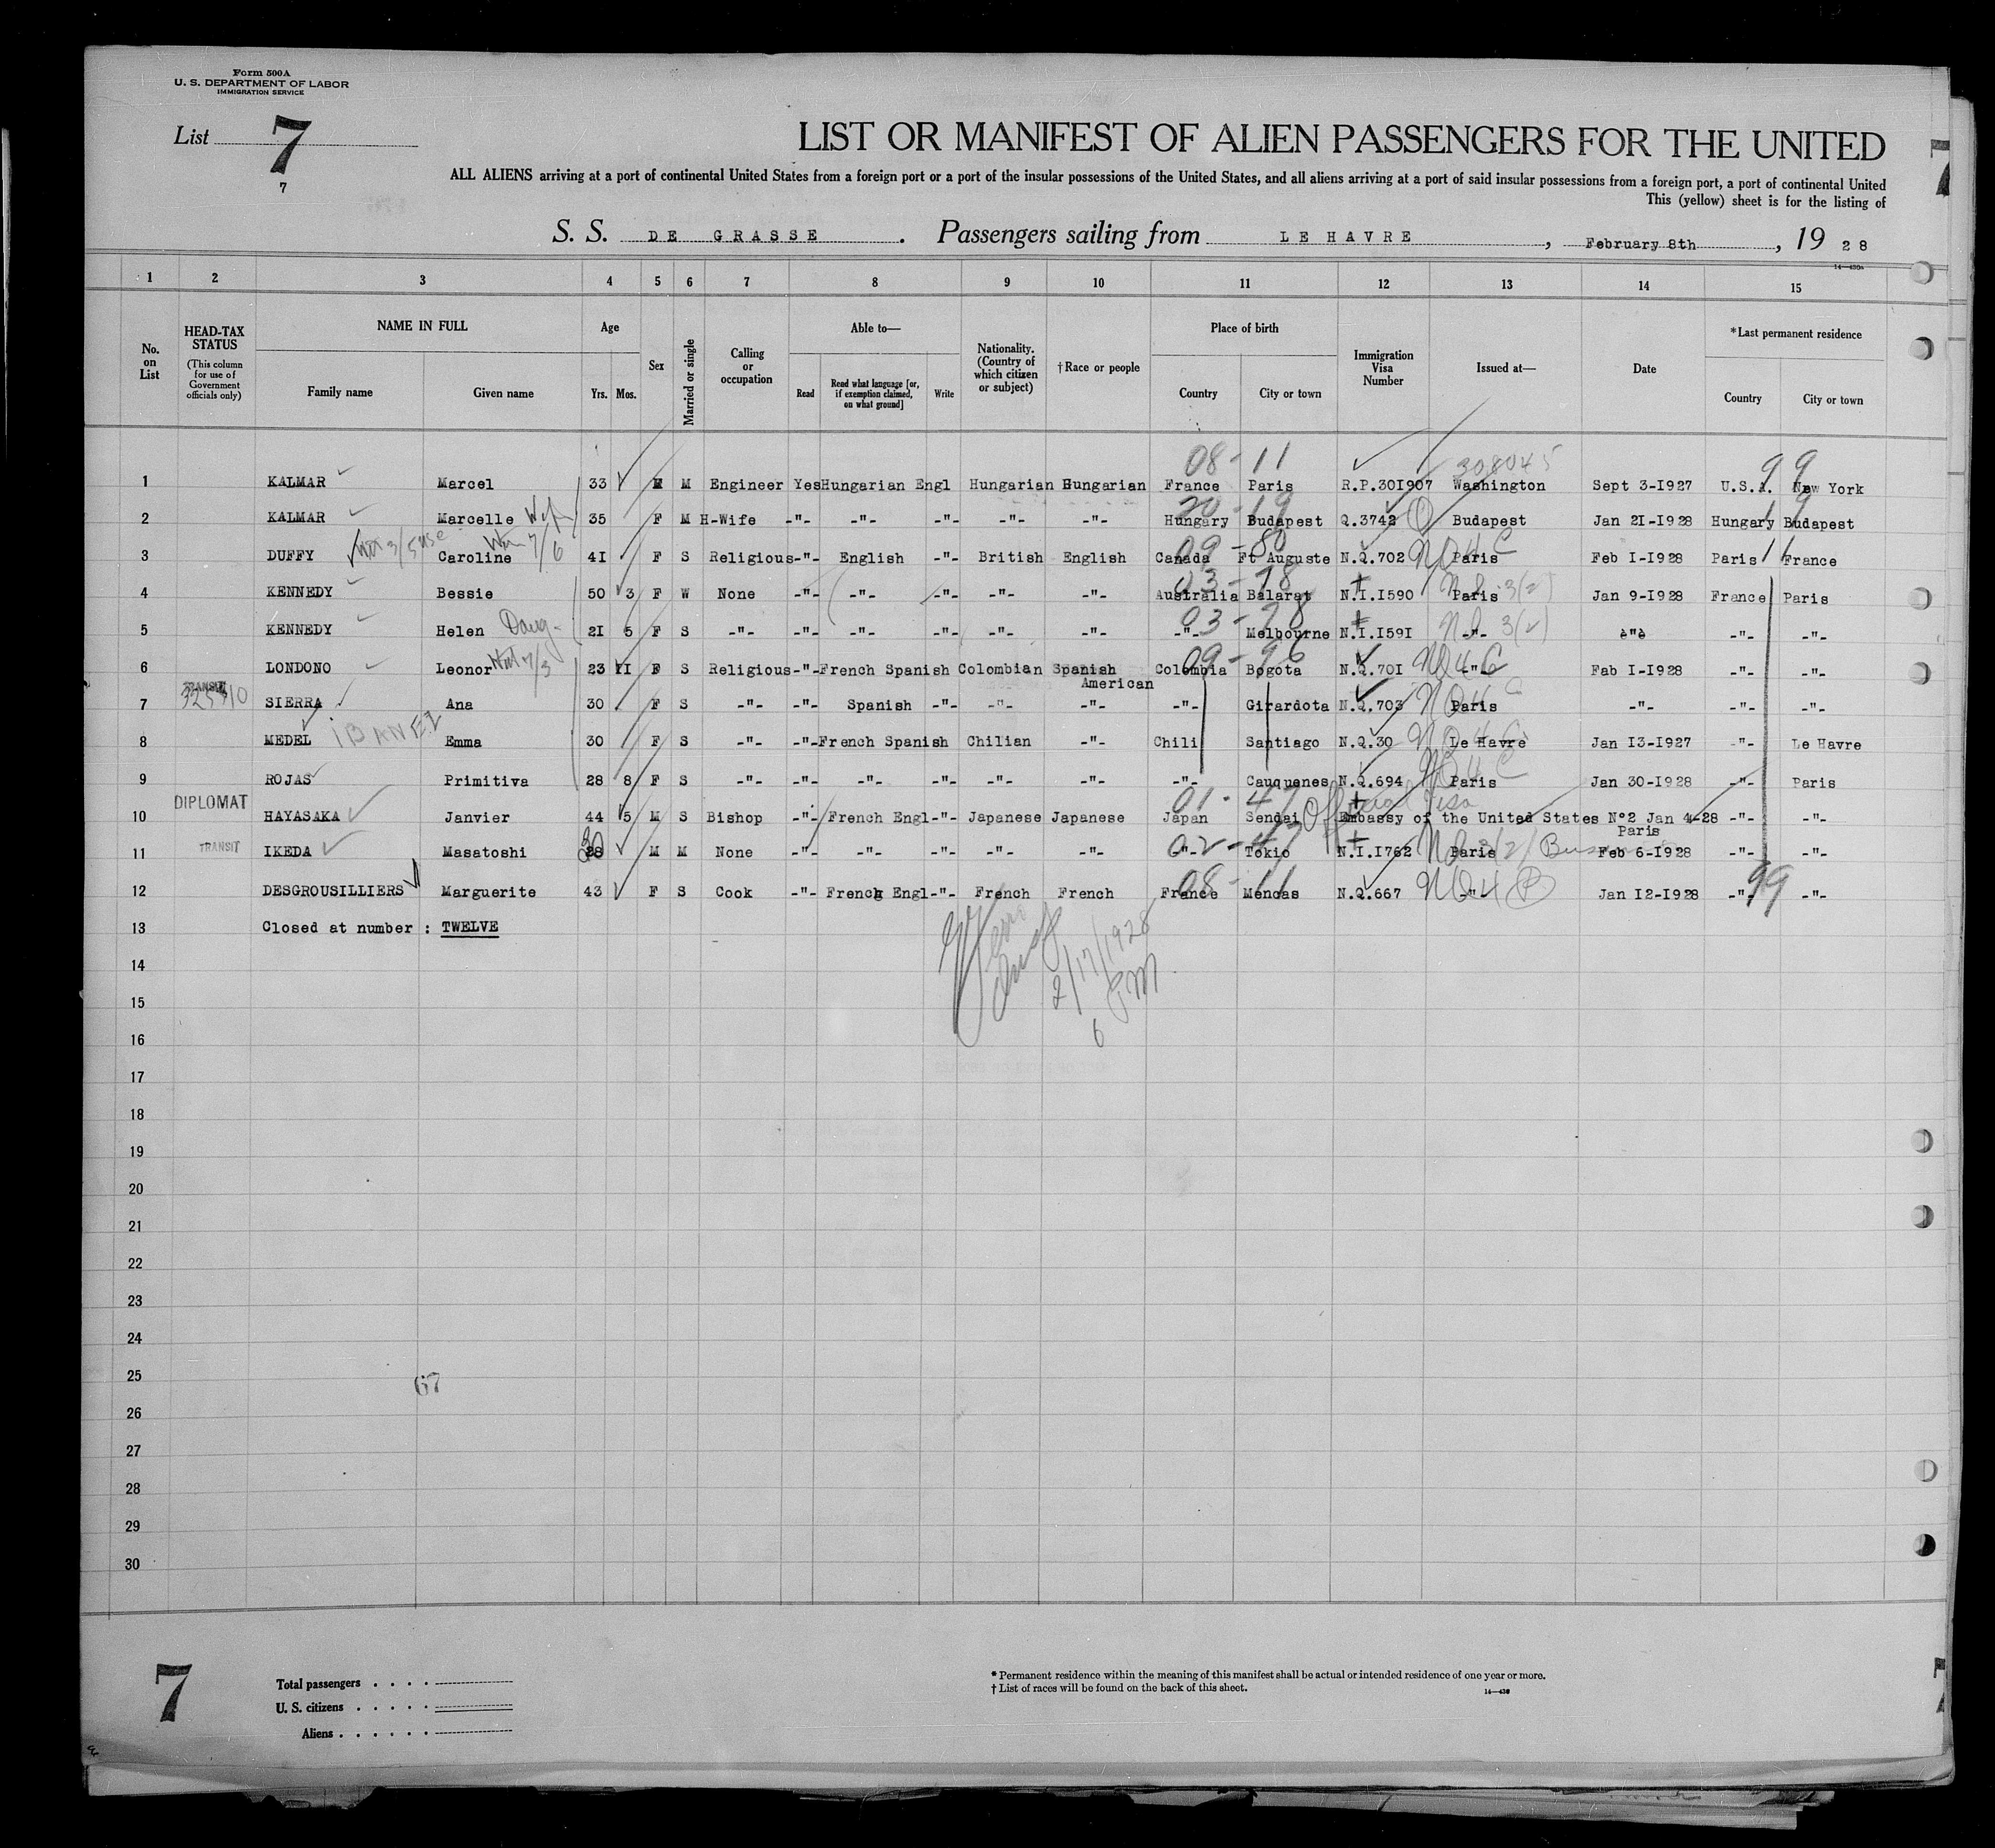 Form 500A
U. S. DEPARTMENT OF LABOR
IMMIGRATION SERVICE
List 7
7
LIST OR MANIFEST OF ALIEN PASSENGERS FOR THE UNITED
7
ALL ALIENS arriving at a port of continental United States from a foreign port or a port of the insular possessions of the United States, and all aliens arriving at a port of said insular possessions from a foreign port, a port of continental United
This (yellow) sheet is for the listing of
S. S. DE GRASSE . Passengers sailing from LE HAVRE , February 8th , 19 28
14—430a
1 2 3 4 5 6 7 8 9 10 11 12 13 14 15
No. on List
HEAD-TAX STATUS
(This column for use of Government officials only)
NAME IN FULL
Family name Given name
Age
Yrs. Mos.
Sex
Married or single
Calling or occupation
Able to—
Read Read what language [or, if exemption claimed, on what ground] Write
Nationality. (Country of which citizen or subject)
†Race or people
Place of birth
Country City or town
Immigration Visa Number
Issued at—
Date
*Last permanent residence
Country City or town
08-11 308045 99
1 KALMAR Marcel 33 M M Engineer Yes Hungarian Engl Hungarian Hungarian France Paris R.P.301907 Washington Sept 3-1927 U.S.A. New York
20-19
2 KALMAR Marcelle Wife 35 F M H-Wife -"- -"- -"- -"- -"- Hungary Budapest Q.3742 Budapest Jan 21-1928 Hungary Budapest
09-80
3 DUFFY Caroline 41 F S Religious -"- English -"- British English Canada Ft Auguste N.Q.702 NQ4C Paris Feb 1-1928 Paris France
03-78
4 KENNEDY Bessie 50 3 F W None -"- -"- -"- -"- -"- Australia Balarat N.I.1590 Paris 3(2) Jan 9-1928 France Paris
03-78
5 KENNEDY Helen Daug- 21 5 F S -"- -"- -"- -"- -"- -"- -"- Melbourne N.I.1591 -"- 3(2) è"è -"- -"-
09-96
6 LONDONO Leonor 23 11 F S Religious -"- French Spanish Colombian Spanish American Colombia Bogota N.Q.701 NQ4C -"- Fab 1-1928 -"- -"-
TRANSIT
7 SIERRA Ana 30 F S -"- -"- Spanish -"- -"- -"- -"- Girardota N.Q.703 NQ4C Paris -"- -"- -"-
8 MEDEL IBANEZ Emma 30 F S -"- -"- French Spanish Chilian -"- Chili Santiago N.Q.30 NQ4C Le Havre Jan 13-1927 -"- Le Havre
9 ROJAS Primitiva 28 8 F S -"- -"- -"- -"- -"- -"- -"- Cauquenes N.Q.694 NQ4C Paris Jan 30-1928 -"- Paris
DIPLOMAT 01-47 Official Visa
10 HAYASAKA Janvier 44 5 M S Bishop -"- French Engl -"- Japanese Japanese Japan Sendai Embassy of the United States N°2 Jan 4-28 -"- -"-
Paris
TRANSIT 30 02-47
11 IKEDA Masatoshi 28 M M None -"- -"- -"- -"- -"- -"- Tokio N.I.1762 Paris Feb 6-1928 -"- -"-
08-11 99
12 DESGROUSILLIERS Marguerite 43 F S Cook -"- French Engl -"- French French France Mencas N.Q.667 NQ4 -"- Jan 12-1928 -"- -"-
13 Closed at number : TWELVE
2/17/1928
6 PM
14
15
16
17
18
19
20
21
22
23
24
25
67
26
27
28
29
30
7
Total passengers . . . .
U. S. citizens . . . . .
Aliens . . . . . .
* Permanent residence within the meaning of this manifest shall be actual or intended residence of one year or more.
† List of races will be found on the back of this sheet.
14—430